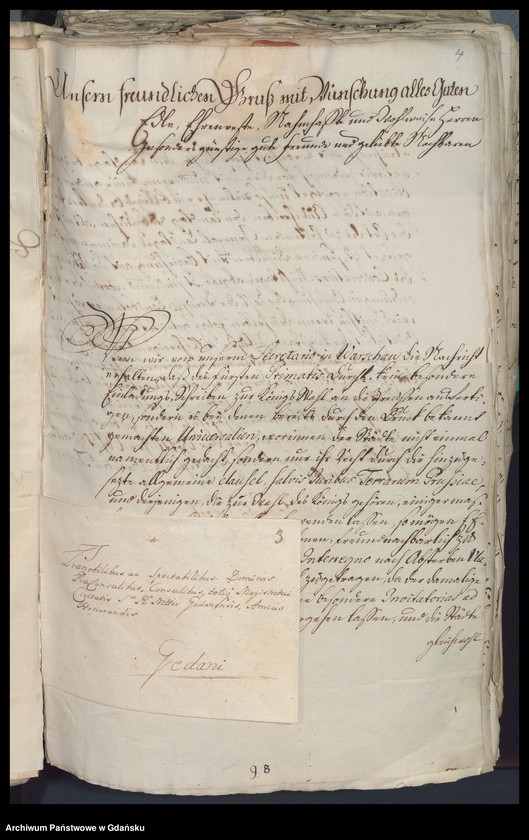 4
Unsern freundlichen Gruß mit Wünschung alles Guten
Edle, Ehrenveste, Nahmhaffte und Wohlweise Herren
Besonders günstige gute Freunde und geliebte Nachbaren
wir von unserm Secretario in Warschau, die Nachricht
erhalten, daß des Fürsten Primatis Durchl. keine besondere
Einladungs Schreiben zur Königs Wahl an die Preußen ausferti-
gen, sondern es bey denen bereits durch den Druck bekannt
gemachten Universalien, worinnen der Städte nicht einmal
namentlich gedacht, sondern nur ihr Recht durch die hinzuge-
setzte allgemeine clausel, salvis Juribus Terrarum Prussiae,
und derjenigen, die zur Wahl des Königs gehören, einigermas-
wenden lassen, so mögen
freundnachbarlich
Interregno nach Absterben
zugetragen, da der damalige
besondere Invitatorias ad
ergehen lassen, und die Städte
gleichwohl
3
Pranobilibus ac Spectabilibus Dominis
Præconsulibus, Consulibus, totiq Magistratui
Civitatis Gedanensis, Amicis
Honorandis
Gedani
98
Archiwum Państwowe w Gdańsku